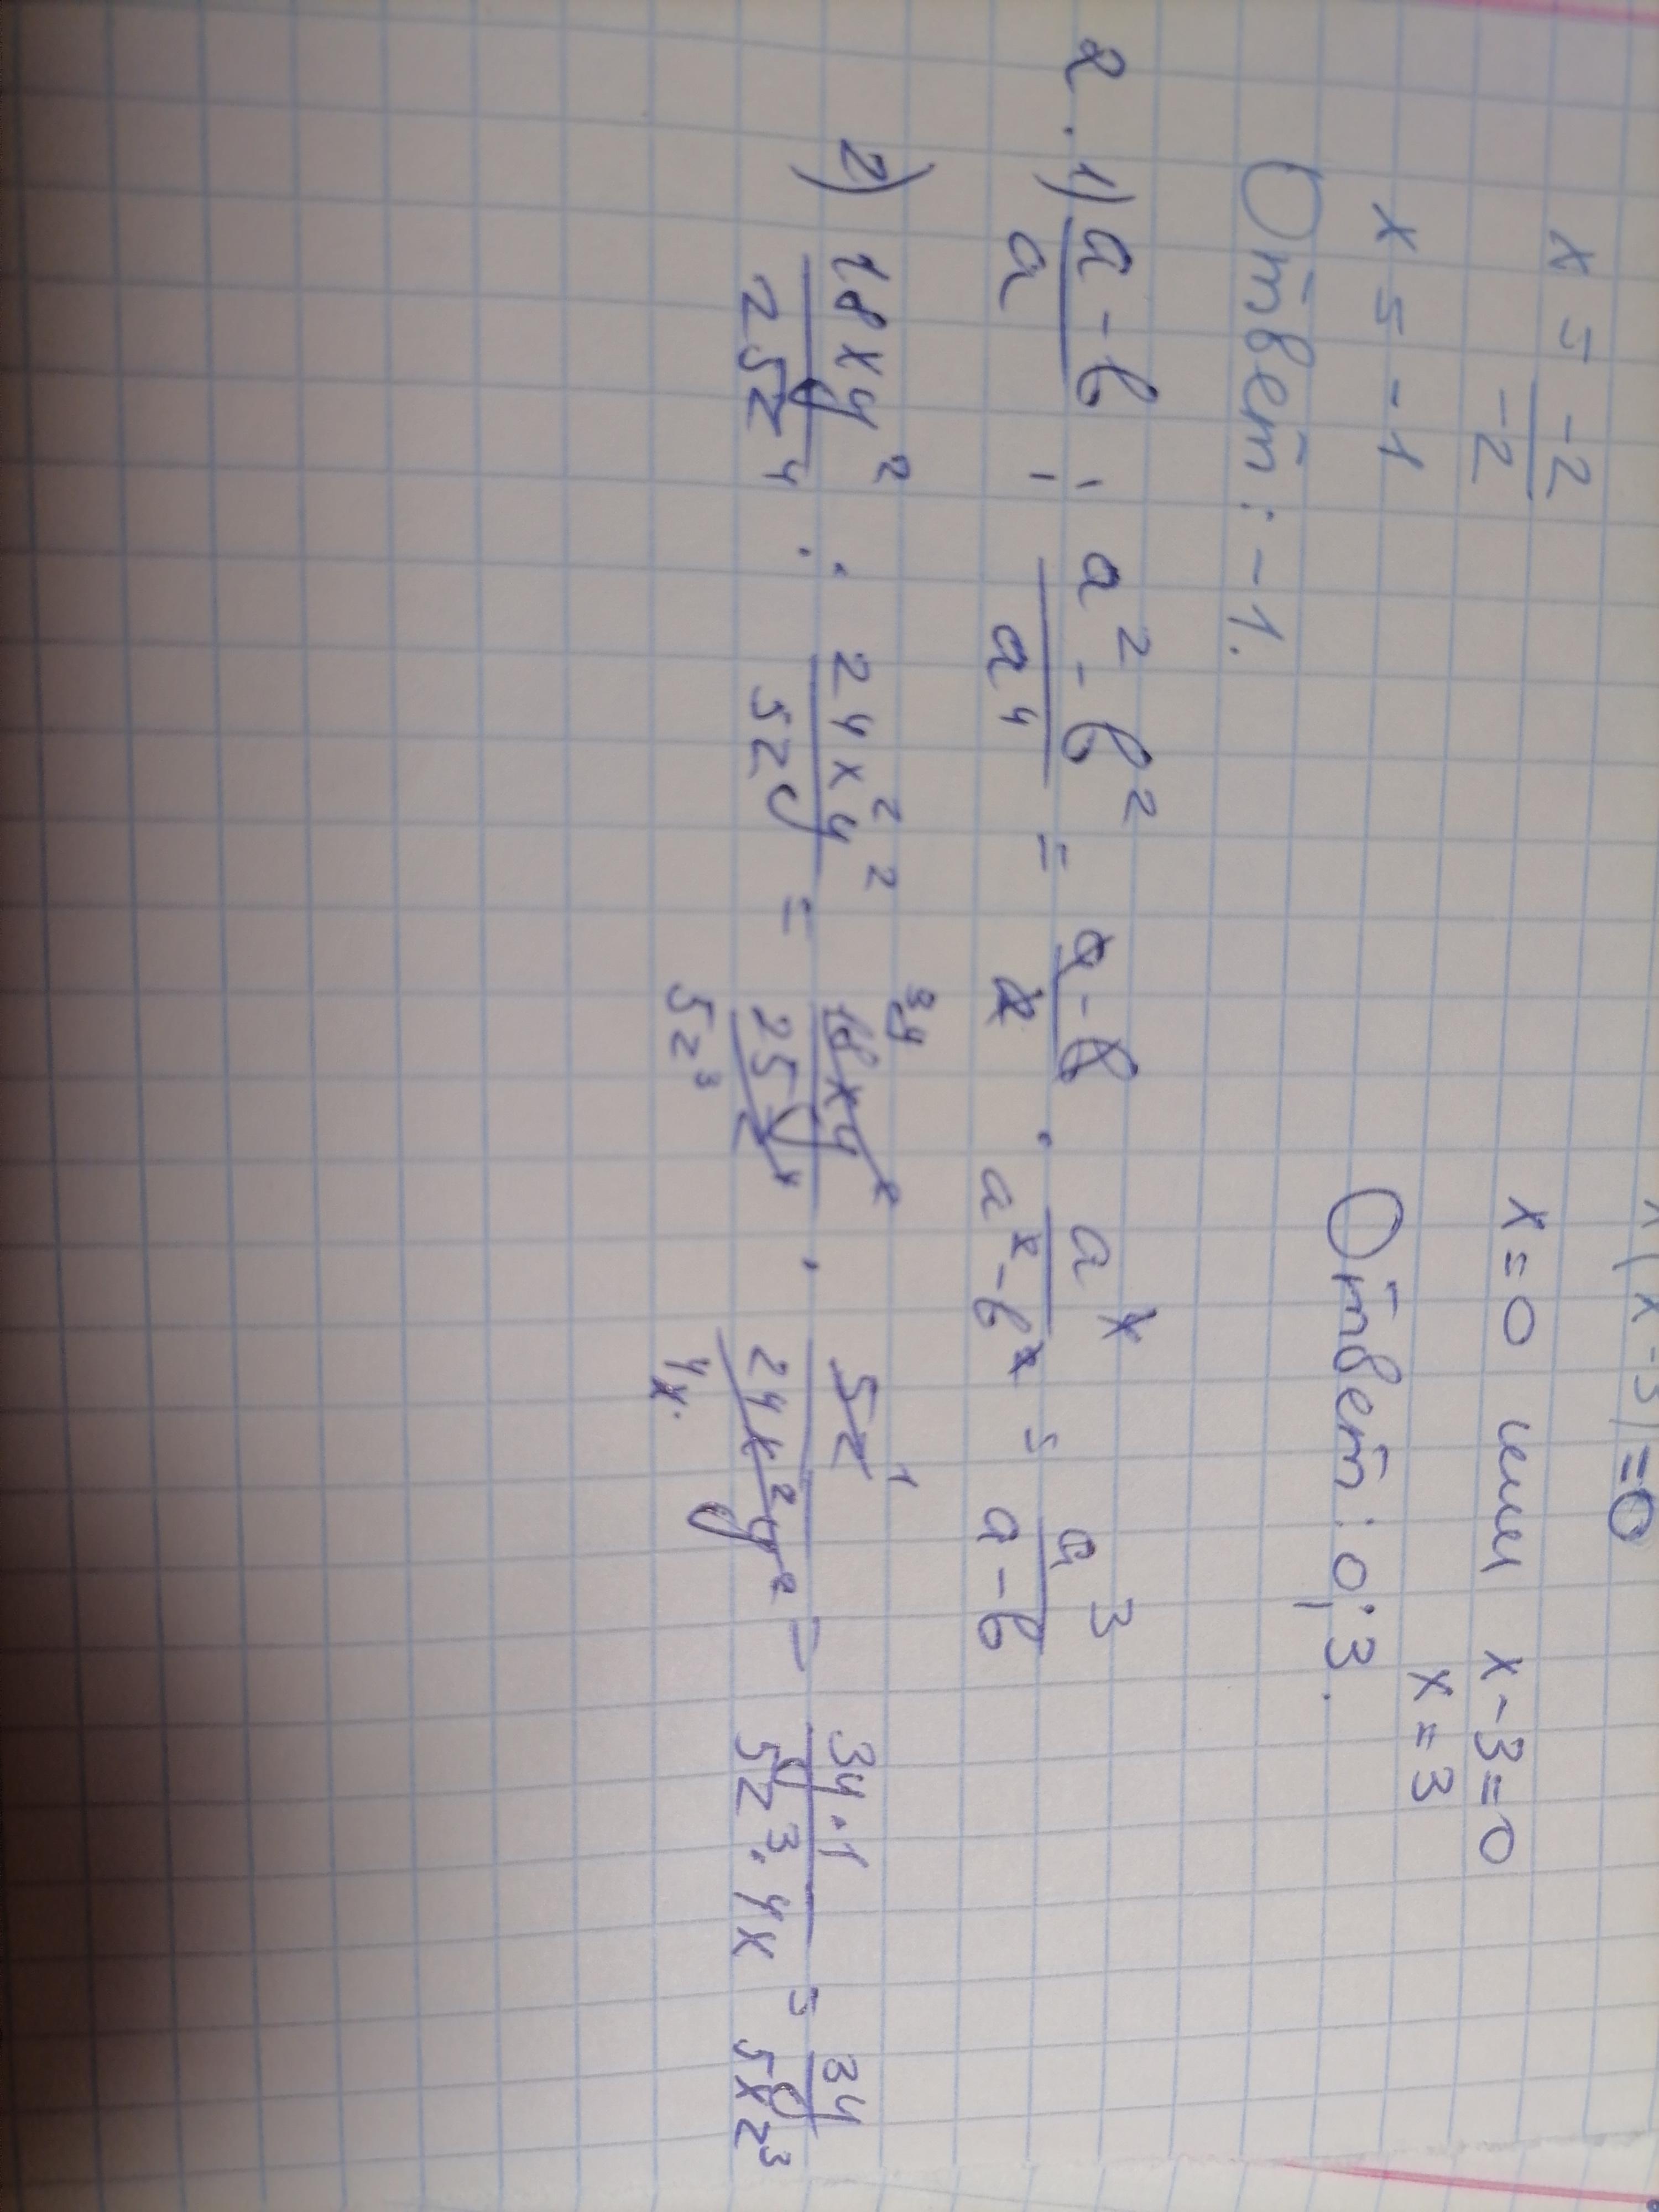 x = -2/-2
x = -1
Ответ: -1.
x(x-3)=0
x=0 или x-3=0
x=3
Ответ: 0;3.
2. 1) a-b/a : a²-b²/a⁴ = a-b/a · a⁴/a²-b² = a³/a-b
2) 18xy²/25z⁴ : 24x²y²/5z = 18xy²/25z⁴ · 5z/24x²y² = 3y·1/5z³·4x = 3y/5xz³
3y 1
5z³ 4x.